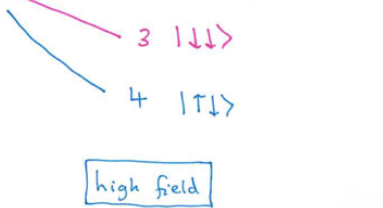 3 |↓↓⟩
4 |↑↓⟩
high field